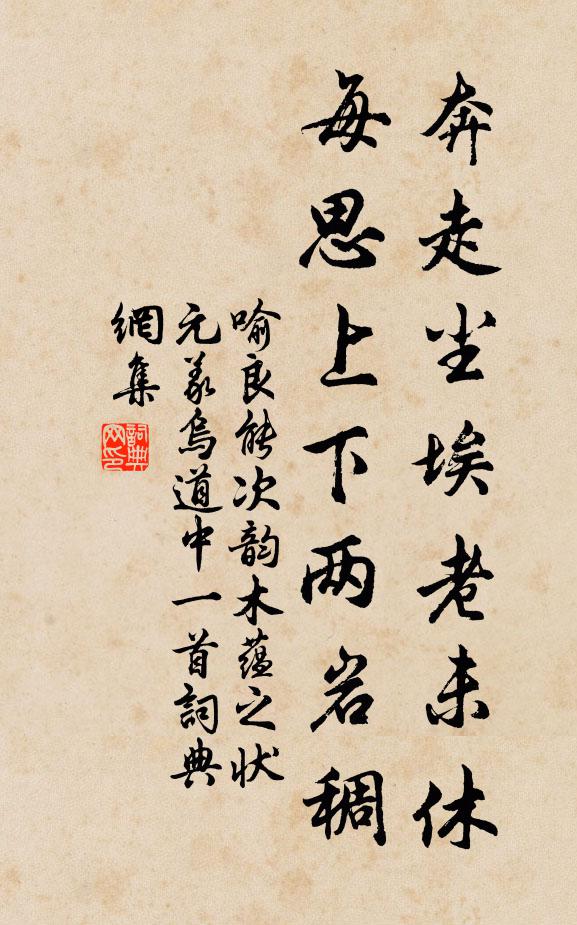 奔走尘埃老未休
每思上下两岩稠
喻良能次韵木蕴之状
元义乌道中一首詞典
網集
詞典
网印